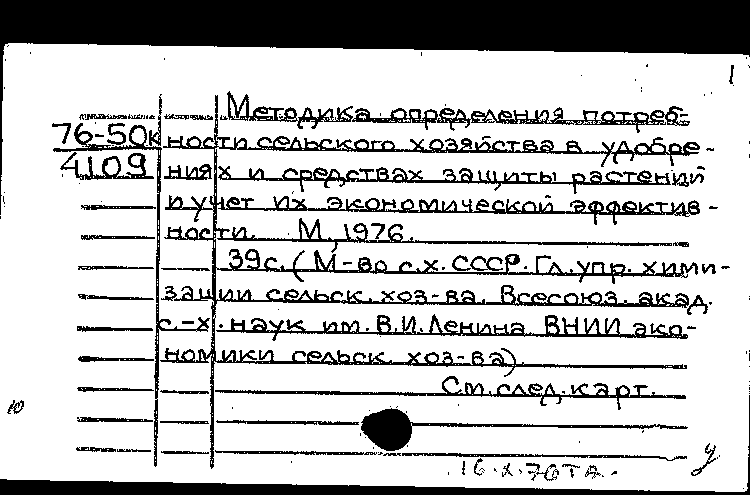 1
Методика определения потреб-
76-50к ности сельского хозяйства в удобре-
4109 ниях и средствах защиты растений
и учет их экономической эффектив-
ности. М., 1976.
39с. (М-во с.х. СССР. Гл. упр. хими-
зации сельск. хоз-ва. Всесоюз. акад.
с.-х. наук им. В.И. Ленина. ВНИИ эко-
номики сельск. хоз-ва).
См. след. карт.
ю
16.X.76 ТА.
у